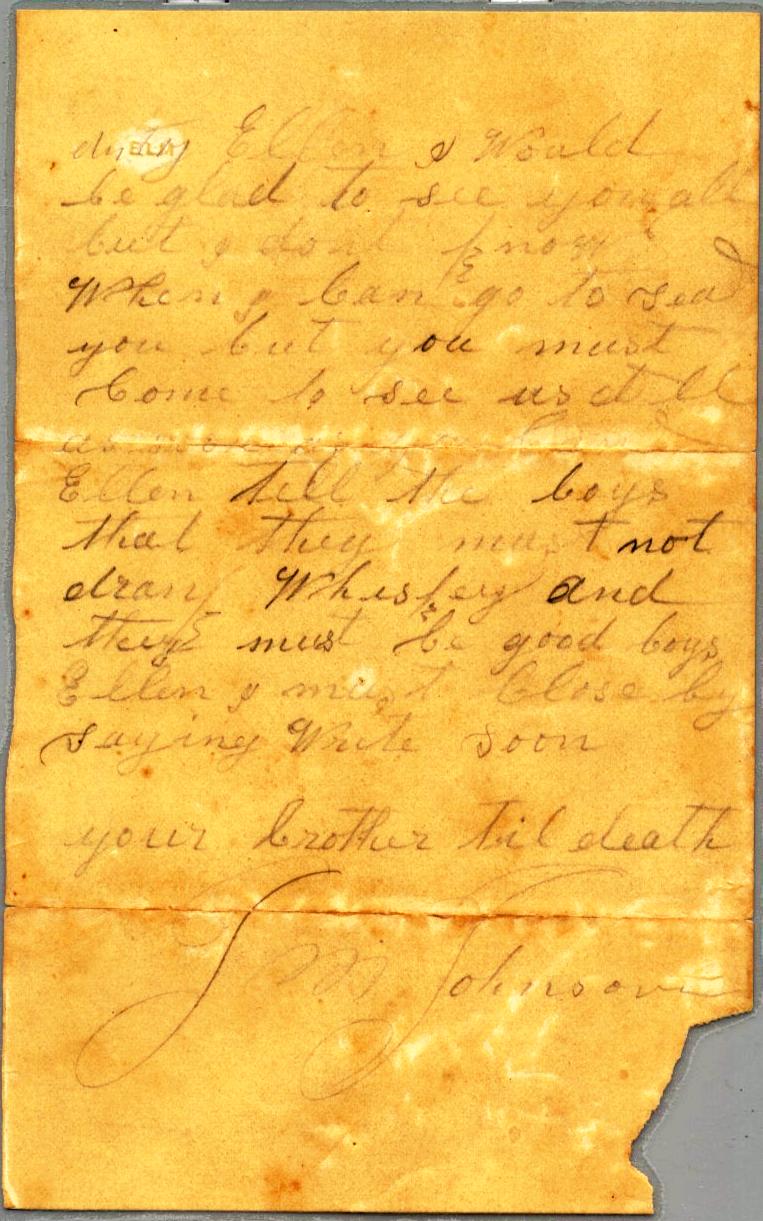 duty Ellen I Would
be glad to see you all
but I dont know
When I Can go to sea
you but you must
Come to see us all
as soon as you Can
Ellen tell the boys
that they must not
drank Whiskey and
they must be good boys
Ellen I must Close by
saying Write soon
your brother til death
J M Johnson